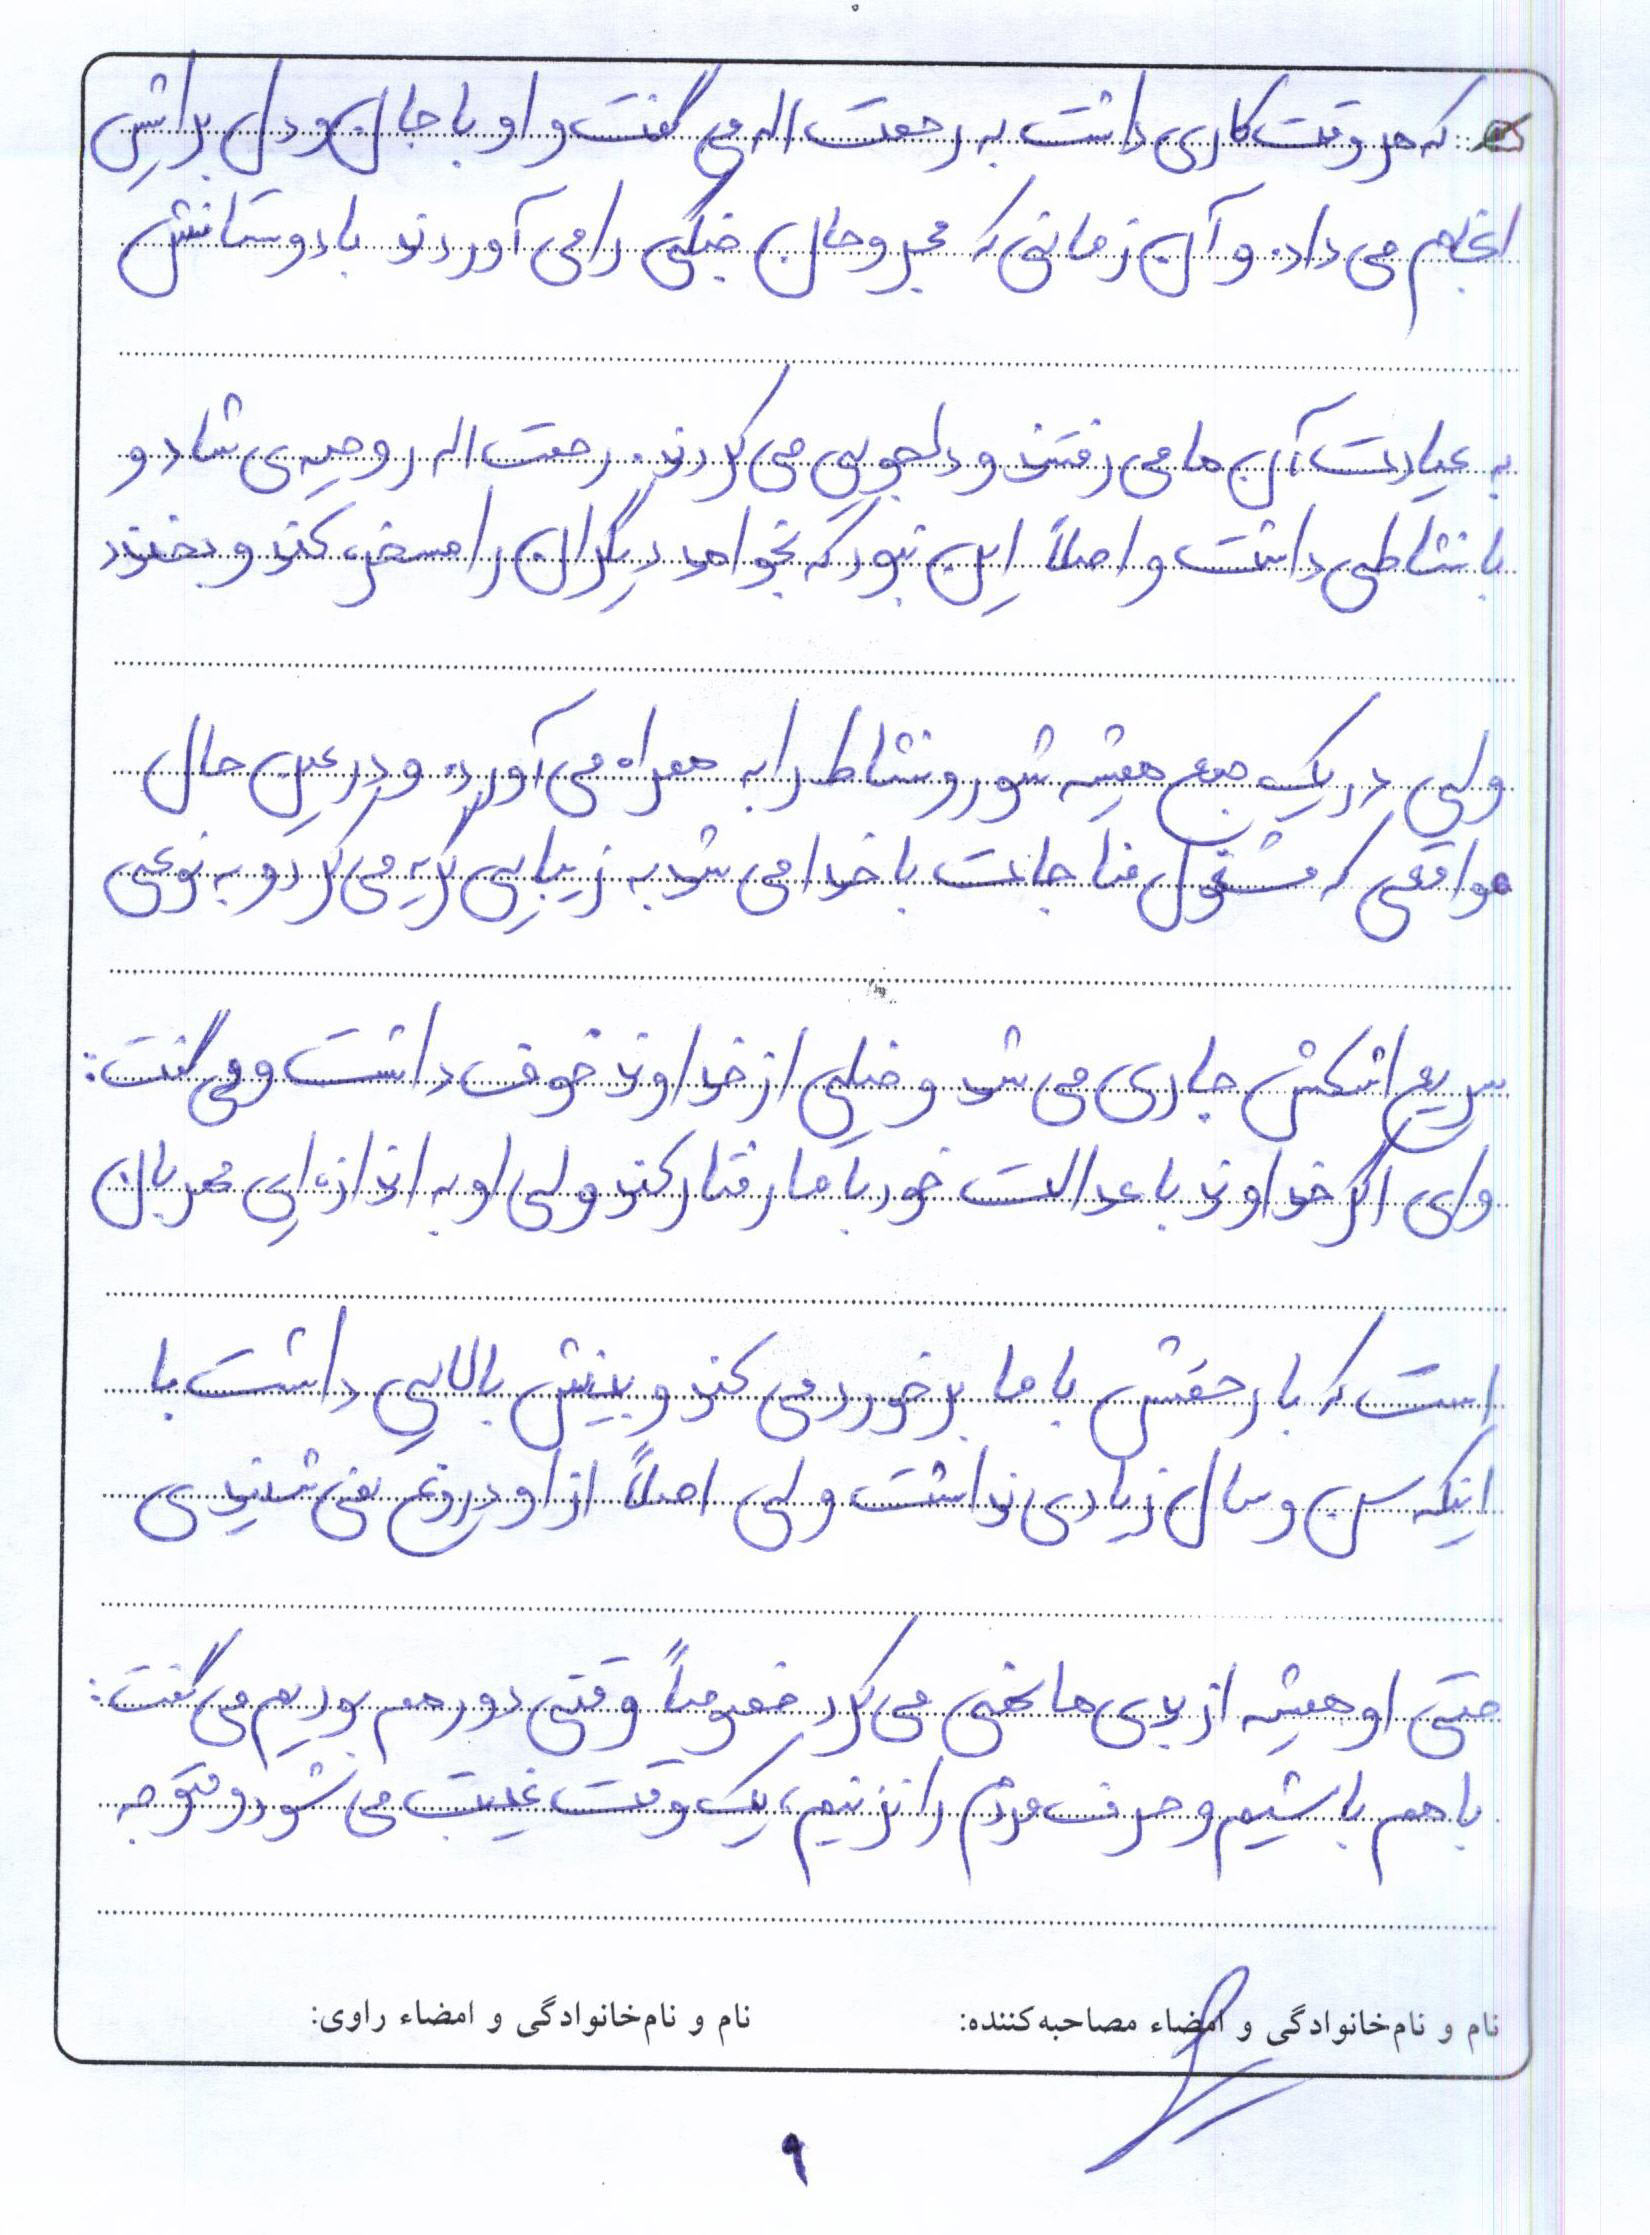 که هر وقت کاری داشت به رحمت اله می گفت و او با جان و دل براش
انجام می داد. و آن زمانی که مجروحان جنگی را می آوردند با دوستانش
به عیادت آن ها می رفتند و دلجویی می کردند. رحمت اله روحیه ی شاد و
با نشاطی داشت و اصلاً این نبود که بخواهد دیگران را مسخره کند و بخندد
ولی در یک جمع همیشه شور و نشاط را به همراه می آورد. و در عین حال
مواقعی که مشغول مناجات با خدا می شد به زیبایی گریه می کرد و به نوعی
سریع اشکش جاری می شد و خیلی از خداوند خوف داشت و می گفت:
وای اگر خداوند با عدالت خود با ما رفتار کند ولی او به اندازه ای مهربان
است که با رحمتش با ما برخورد می کند و بینش بالایی داشت با
اینکه سن و سال زیادی نداشت ولی اصلاً از او دروغ نمی شنیدی
حتی او همیشه از بدی ها نهی می کرد خصوصاً وقتی دور هم بودیم می گفت:
با هم باشیم و حرف مردم را نزنیم، یک وقت غیبت می شود و متوجه
نام و نام‌خانوادگی و امضاء مصاحبه‌کننده: نام و نام‌خانوادگی و امضاء راوی:
۹